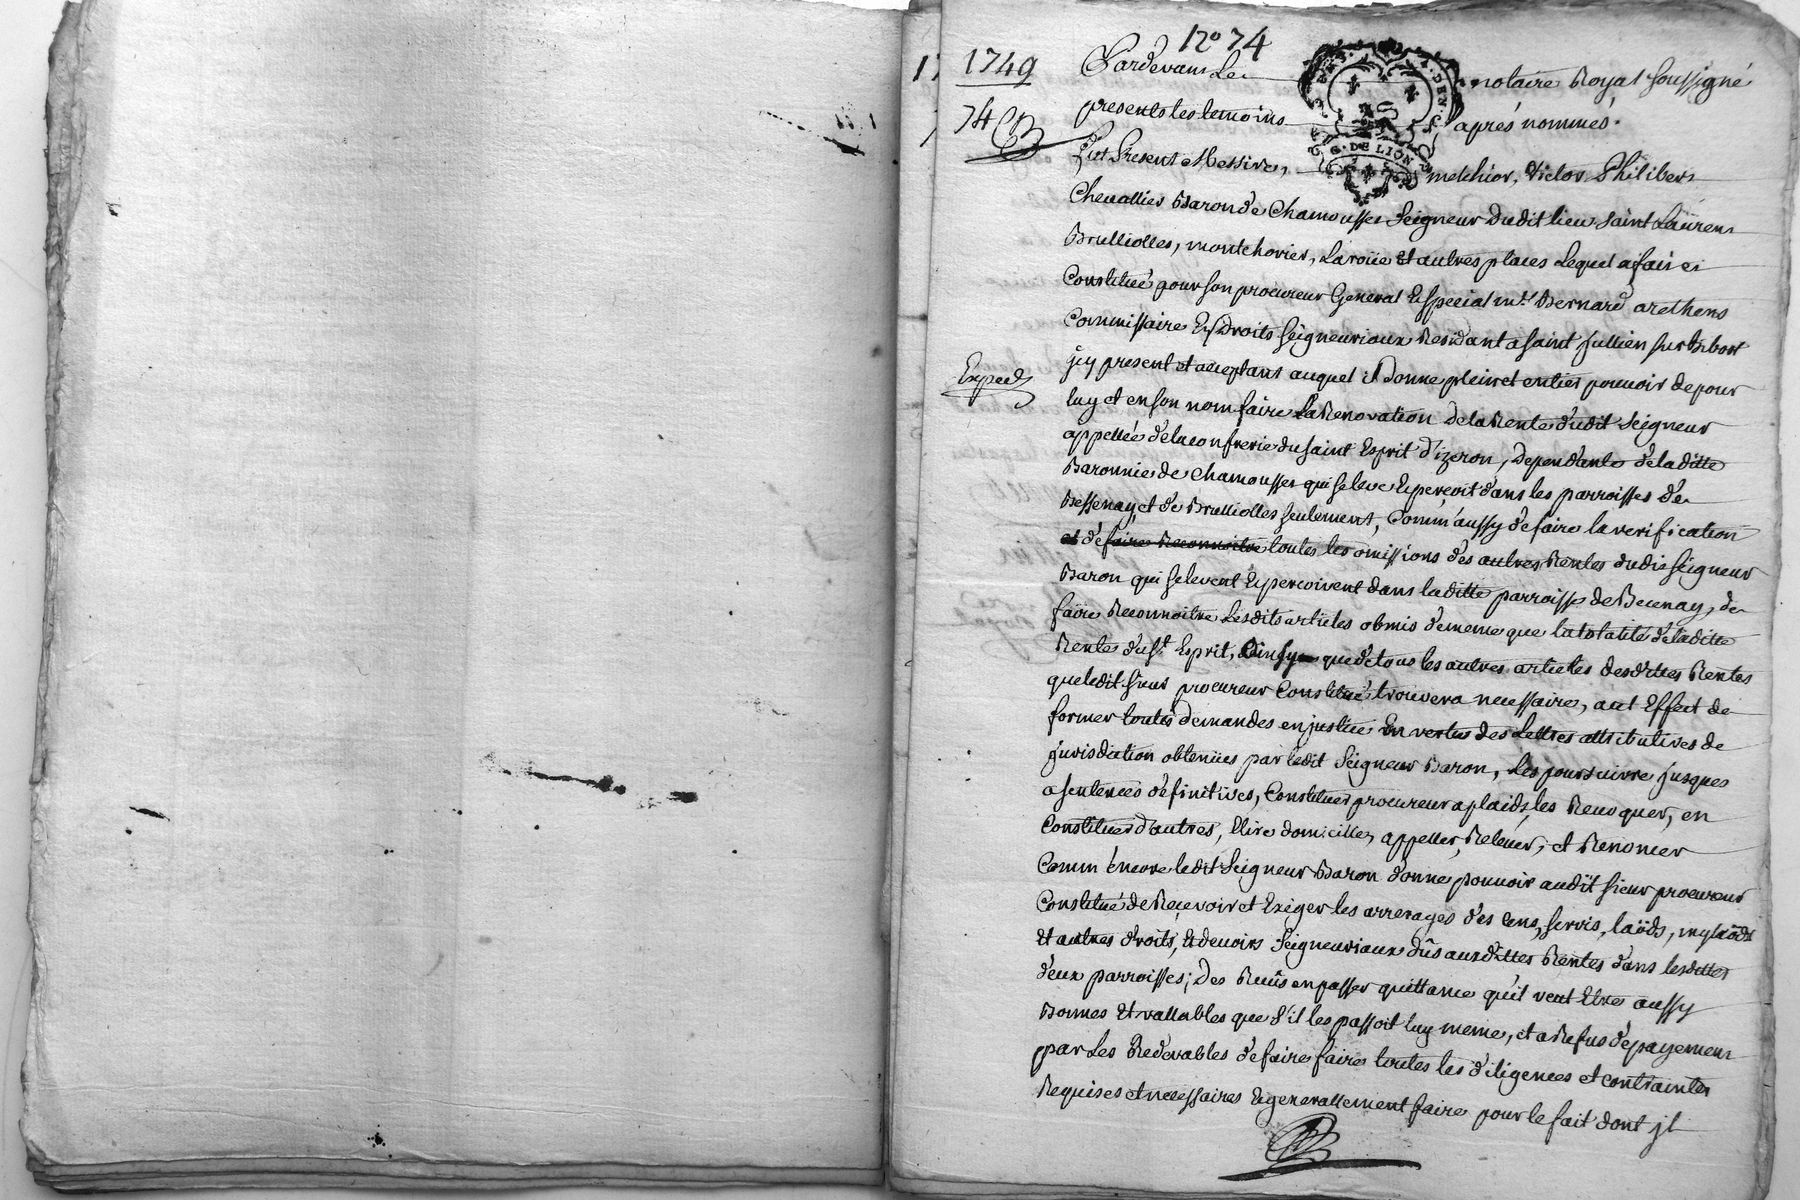 N° 74
1749
74
Pardevant Le notaire Royal soussigné
presents les temoins aprés nommés.
G. DE LION
Fut Present Messire, melchior, Victor Philibert
Chevallier Baron de Chamousset Seigneur Dudit lieu saint Laurent
Brulliolles, montchorier, Laroüe Et autres places Lequel a fait et
Constitué pour son procureur General Especial mr. Bernard arethens
Commissaire Es Droits seigneuriaux Residant a saint Jullien sur Bibost
Exped
jcy present et acceptant auquel il Donne plein et entier pouvoir de pour
luy et en son nom faire La Renovation De la Rente dudit Seigneur
appellée de la confrerie du saint Esprit d'izeron, Dependante de la ditte
Baronnie de Chamousset qui se leve Et perçoit dans les parroisses de
Bessenay et de Brulliolles seulement, Comm'aussy de faire la verification
et de faire Reconnoitre toutes les omissions des autres Rentes dudit seigneur
Baron qui se levent Et percoivent dans la ditte parroisse de Becenay, de
faire Reconnoitre Lesdits articles obmis de meme que la totalité de la ditte
Rente du St. Esprit, Ainsy que de tous les autres articles desdittes Rentes
que ledit sieur procureur Constitué trouvera necessaire, aut Effect de
former toutes demandes en justice En vertus des Lettres attributives de
jurisdiction obtenües par ledit Seigneur Baron, Les poursuivre jusques
a sentences définitives, Constituer procureur a plaids, les Revoquer, en
Constituer d'autres, Elire domicille, appeller, Relever, et Renoncer
Comm'encore ledit Seigneur Baron donne pouvoir audit sieur procureur
Constitué de Reçevoir et Exiger les arrerages des cens, servis, laöds, mylaöds
Et autres droits, Et devoirs Seigneuriaux dûs auxdittes Rentes dans lesdittes
deux parroisses; Des Reçûs en passer quittance qu'il veut Etre aussy
Bonnes Et vallables que s'il les passoit luy meme, et a Refus de payement
par Les Redevables de faire faire toutes les diligences et contraintes
Requises et necessaires Et generallement faire pour le fait dont jl